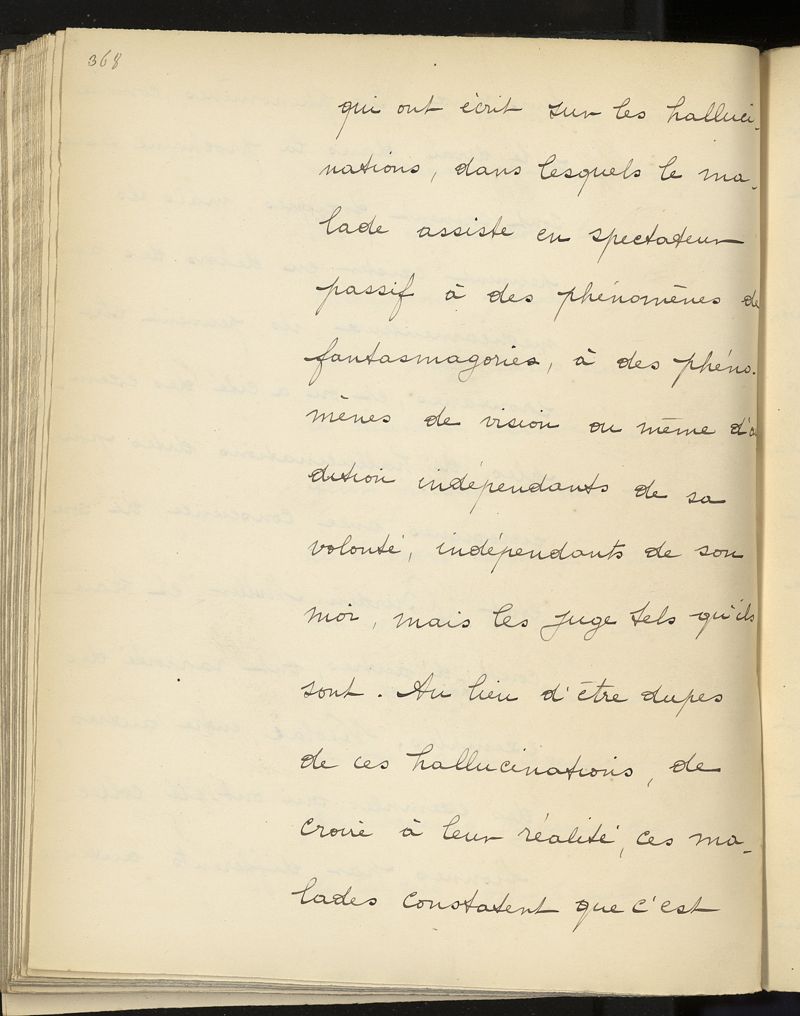 368
qui ont écrit sur les halluci-
nations, dans lesquels le ma-
lade assiste en spectateur
passif à des phénomènes de
fantasmagories, à des phéno-
mènes de vision ou même
dition indépendants de sa
volonté, indépendants de son
moi, mais les juge tels qu'ils
sont. Au lieu d'être dupes
de ces hallucinations, de
croire à leur réalité, ces ma-
lades constatent que c'est